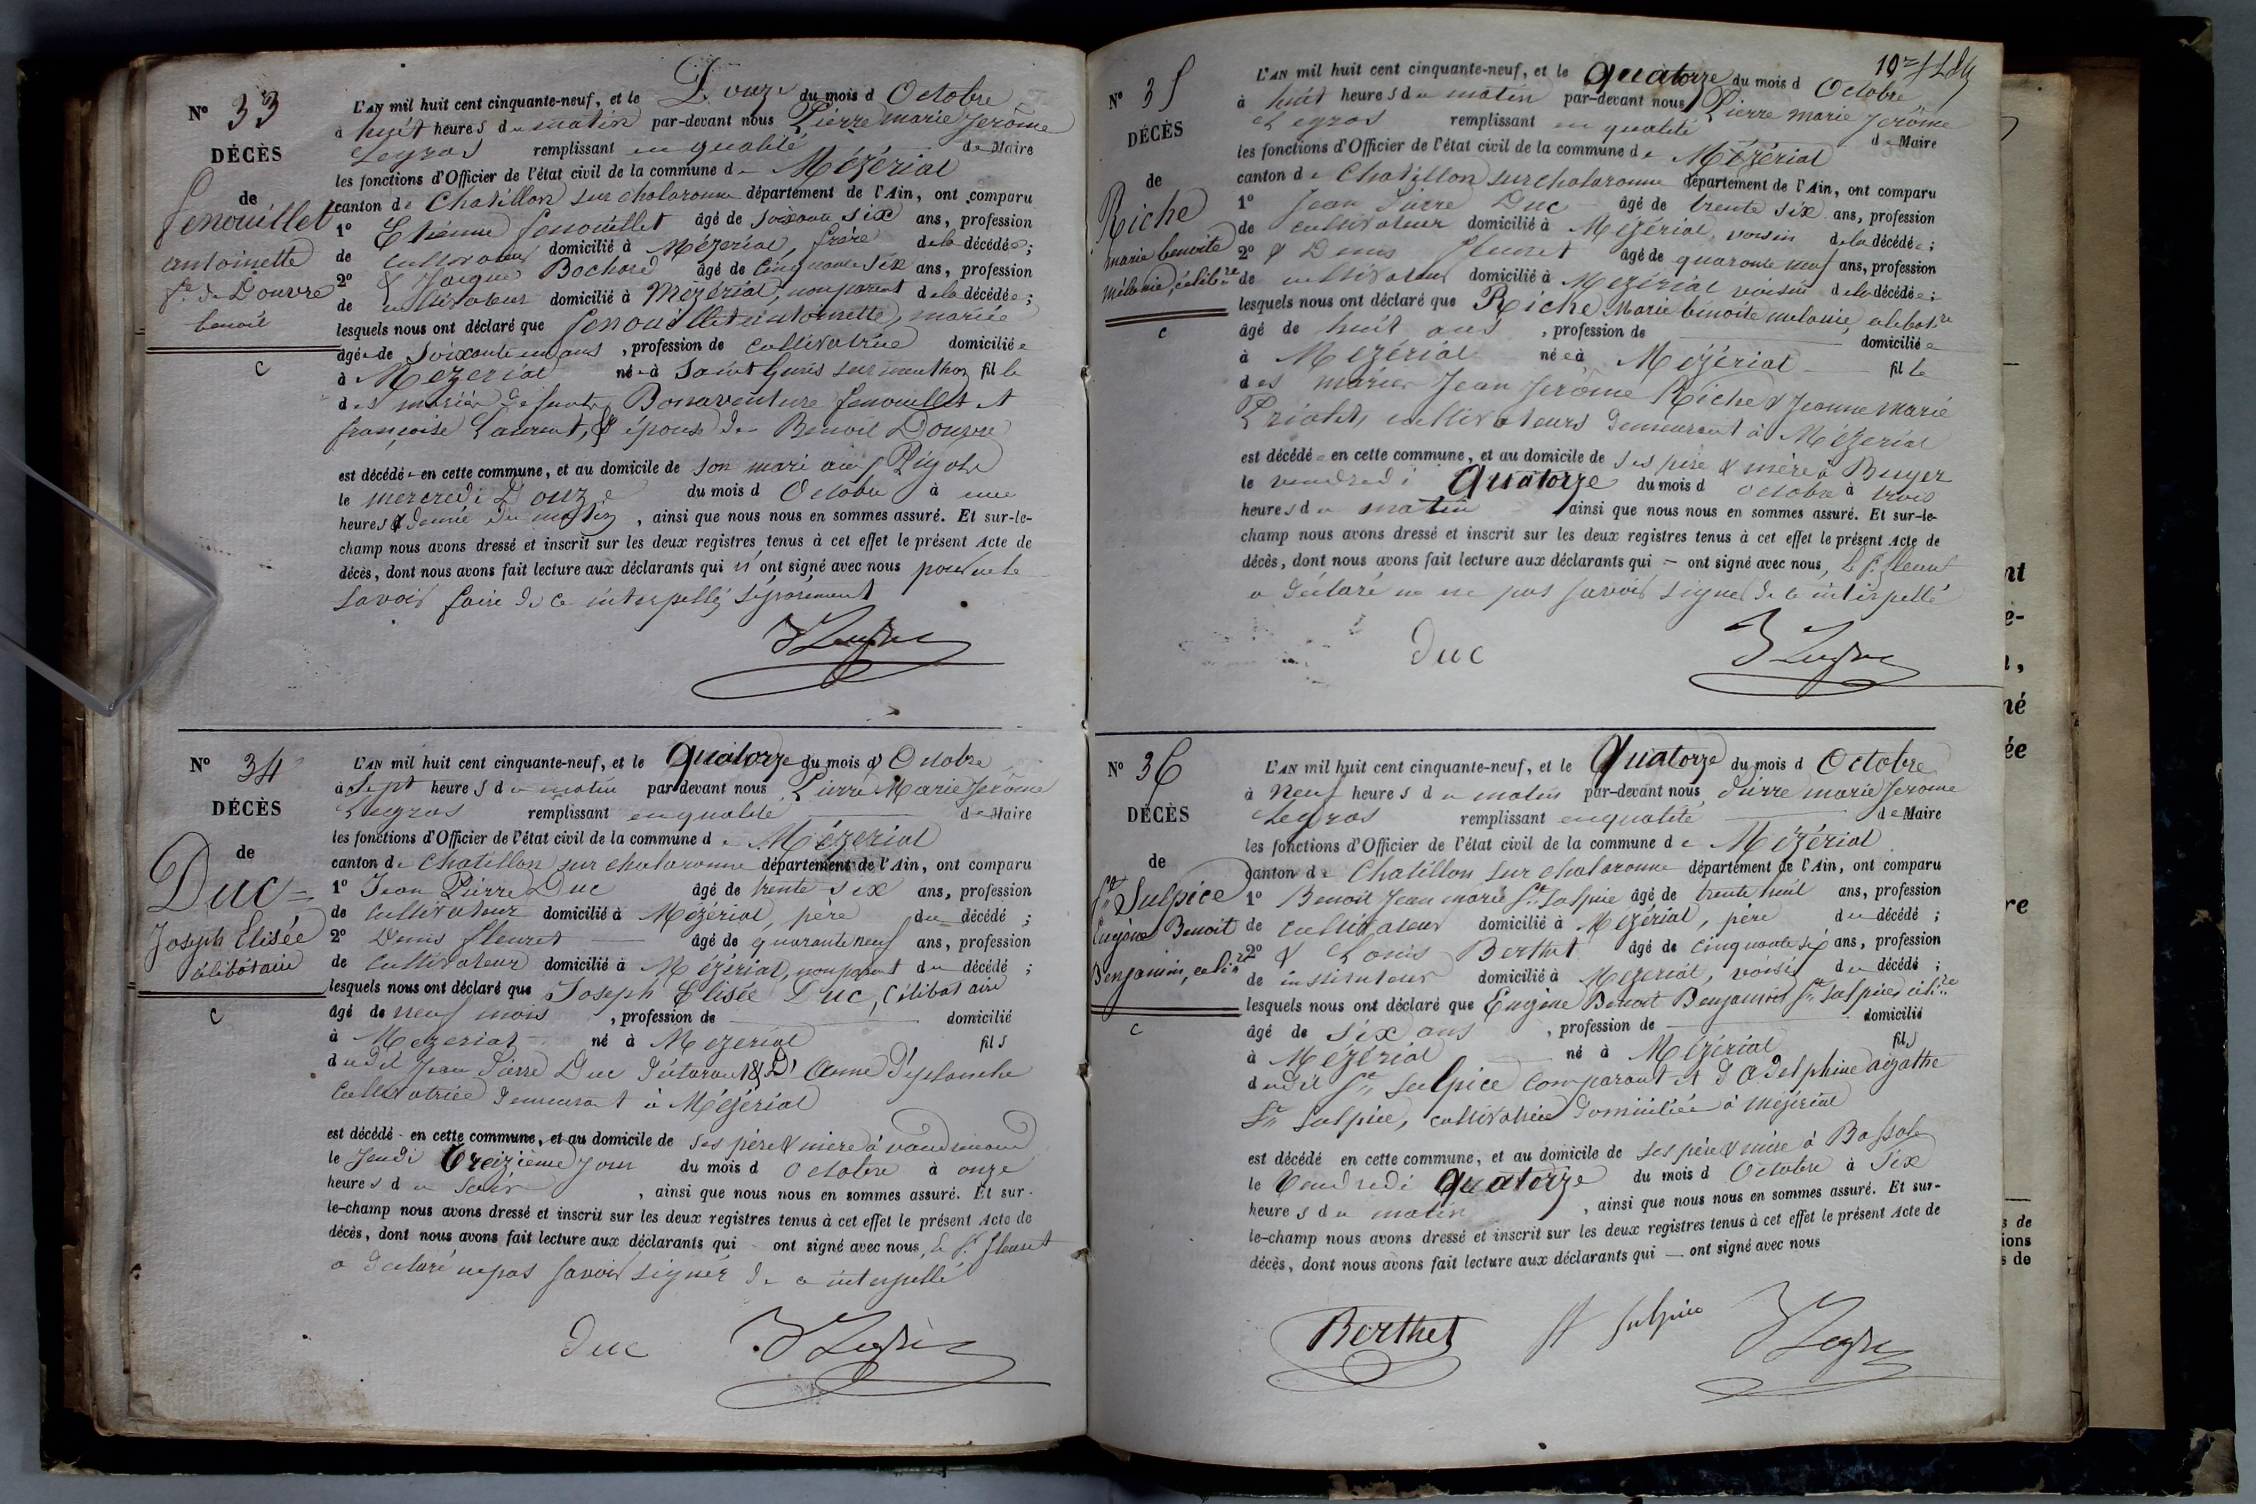 N° 33
DÉCÈS
de
fenouillet
antoinette
fe de Douvre
benoit
C
L'AN mil huit cent cinquante-neuf, et le Douze du mois d Octobre
à huit heures du matin par-devant nous Pierre marie Jerôme
Legros remplissant en qualité de Maire
les fonctions d'Officier de l'état civil de la commune de Mézériat
canton de Chatillon sur chalaronne département de l'Ain, ont comparu
1° Etienne fenouillet âgé de soixante six ans, profession
de cultivateur domicilié à Mézériat, frère de la décédée;
2° & Jacques Bochard âgé de cinquante six ans, profession
de cultivateur domicilié à Mézériat, non parent de la décédée;
lesquels nous ont déclaré que fenouillet antoinette, mariée
âgée de soixante un ans, profession de cultivatrice domiciliée
à Mézériat née à Saint Genis sur menthon fille
des mariés defunts Bonaventure fenouillet et
françoise Laurent, & épouse de Benoit Douvre
est décédée en cette commune, et au domicile de son mari aux
le mercredi Douze du mois d Octobre à une
heures & demie du matin, ainsi que nous nous en sommes assuré. Et sur-le-
champ nous avons dressé et inscrit sur les deux registres tenus à cet effet le présent Acte de
décès, dont nous avons fait lecture aux déclarants qui n'ont signé avec nous pour ne le
savoir faire de ce interpellés séparément
Legros
N° 34
DÉCÈS
de
Duc
Joseph Elisée
célibataire
C
L'AN mil huit cent cinquante-neuf, et le quatorze du mois d Octobre
à Sept heures du matin par-devant nous Pierre Marie Jerôme
Legros remplissant en qualité de Maire
les fonctions d'Officier de l'état civil de la commune de Mézériat
canton de Chatillon sur chalaronne département de l'Ain, ont comparu
1° Jean Pierre Duc âgé de trente six ans, profession
de cultivateur domicilié à Mézériat, père du décédé;
2° Denis fleuret âgé de quarante neuf ans, profession
de cultivateur domicilié à Mézériat, non parent du décédé;
lesquels nous ont déclaré que Joseph Elisée Duc, célibataire
âgé de neuf mois, profession de domicilié
à Mézériat né à Mézériat fils
dudit Jean Pierre Duc déclarant & d'Anne Déplanche
cultivatrice demeurant à Mézériat
est décédé en cette commune, et au domicile de ses père & mère à
le Jeudi treizième jour du mois d Octobre à onze
heures du soir, ainsi que nous nous en sommes assuré. Et sur-
le-champ nous avons dressé et inscrit sur les deux registres tenus à cet effet le présent Acte de
décès, dont nous avons fait lecture aux déclarants qui ont signé avec nous, le S. fleuret
a déclaré ne pas savoir signer de ce interpellé
Duc Legros
N° 35
DÉCÈS
de
Riche
marie benoite
melanie, célibre
C
L'AN mil huit cent cinquante-neuf, et le quatorze du mois d Octobre
à huit heures du matin par-devant nous Pierre marie Jerôme
Legros remplissant en qualité de Maire
les fonctions d'Officier de l'état civil de la commune de Mézériat
canton de Chatillon sur chalaronne département de l'Ain, ont comparu
1° Jean Pierre Duc âgé de trente six ans, profession
de cultivateur domicilié à Mézériat, voisin de la décédée;
2° & Denis fleuret âgé de quarante neuf ans, profession
de cultivateur domicilié à Mézériat voisin de la décédée;
lesquels nous ont déclaré que Riche Marie benoite melanie, célibatre
âgé de huit ans, profession de domiciliée
à Mézériat née à Mézériat fille
des mariés Jean Jerôme Riche & Jeanne marie
cultivateurs demeurant à Mézériat
est décédée en cette commune, et au domicile de ses père & mère à Buyer
le vendredi quatorze du mois d octobre à trois
heures du matin ainsi que nous nous en sommes assuré. Et sur-le-
champ nous avons dressé et inscrit sur les deux registres tenus à cet effet le présent Acte de
décès, dont nous avons fait lecture aux déclarants qui – ont signé avec nous, le S. fleuret
a déclaré ne pas savoir signer de ce interpellé
Duc Legros
N° 36
DÉCÈS
de
St Sulpice
Eugène Benoit
Benjamin, célibre
C
L'AN mil huit cent cinquante-neuf, et le quatorze du mois d Octobre
à Neuf heures du matin par-devant nous Pierre marie Jerome
Legros remplissant en qualité de Maire
les fonctions d'Officier de l'état civil de la commune de Mézériat
canton de Chatillon sur chalaronne département de l'Ain, ont comparu
1° Benoit Jean marie St Sulpice âgé de trente huit ans, profession
de cultivateur domicilié à Mézériat, père du décédé;
2° & Louis Berthet âgé de cinquante six ans, profession
de instituteur domicilié à Mézériat, voisin du décédé;
lesquels nous ont déclaré que Eugène Benoit Benjamin St Sulpice, célibre
âgé de six ans, profession de domicilié
à Mézériat né à Mézériat fils
dudit St Sulpice comparant et d'Adelphine agathe
St Sulpice, cultivatrice domiciliée à Mézériat
est décédé en cette commune, et au domicile de ses père & mère à
le Vendredi quatorze du mois d Octobre à six
heures du matin, ainsi que nous nous en sommes assuré. Et sur-
le-champ nous avons dressé et inscrit sur les deux registres tenus à cet effet le présent Acte de
décès, dont nous avons fait lecture aux déclarants qui — ont signé avec nous
Berthet St Sulpice Legros